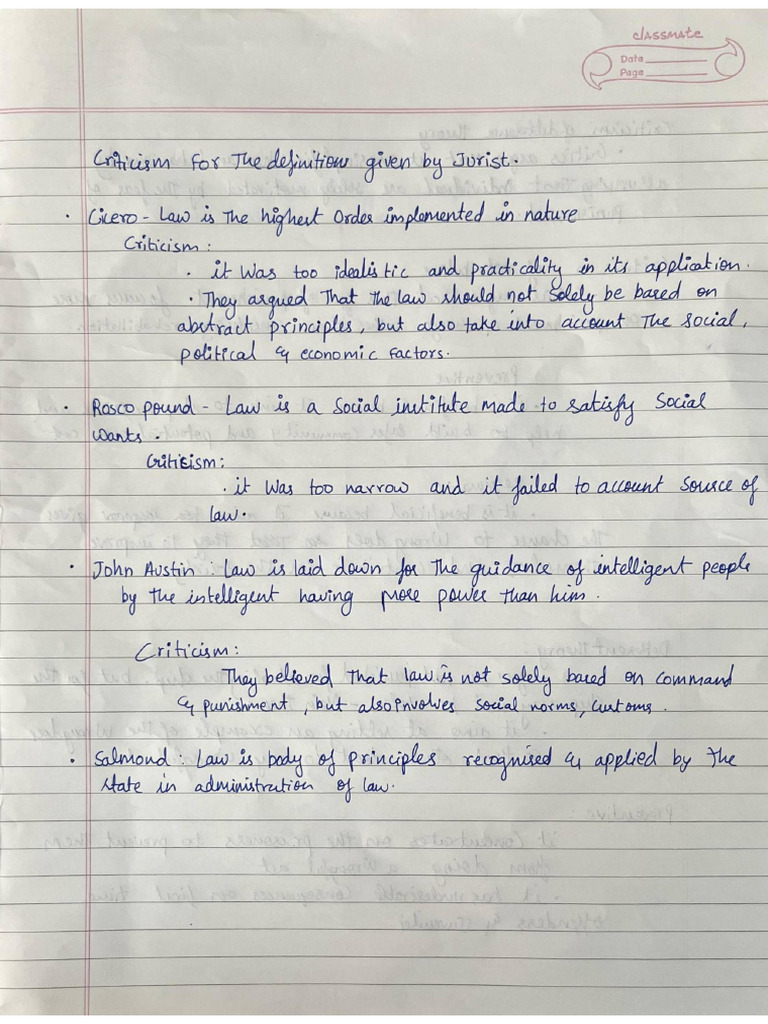 classmate
Date
Page
Criticism for The definitions given by Jurist.
· Cicero - Law is The highest Order implemented in nature
Criticism :
· it Was too idealistic and practicality in its application.
· They argued That the law should not solely be based on
abstract principles, but also take into account The social,
political & economic factors.
· Rosco pound - Law is a Social institute made to satisfy Social
Wants.
Criticism :
· it Was too narrow and it failed to account Source of
law.
· John Austin : Law is laid down for The guidance of intelligent people
by The intelligent having more power Than him.
Criticism :
They believed That law is not solely based on command
& punishment, but also involves social norms, customs.
· Salmond : Law is body of principles recognised & applied by The
state in administration of law.